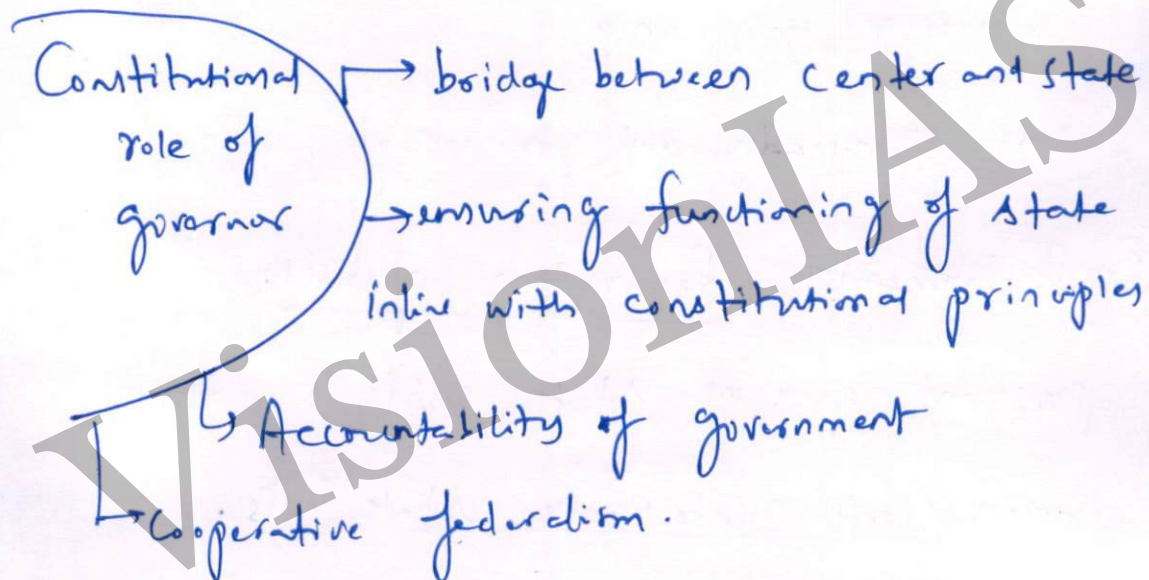 Constitutional
role of
governor
→ bridge between center and state
→ ensuring functioning of state
inline with constitutional principles
↳ Accountability of government
→ cooperative federalism.
VisionIAS